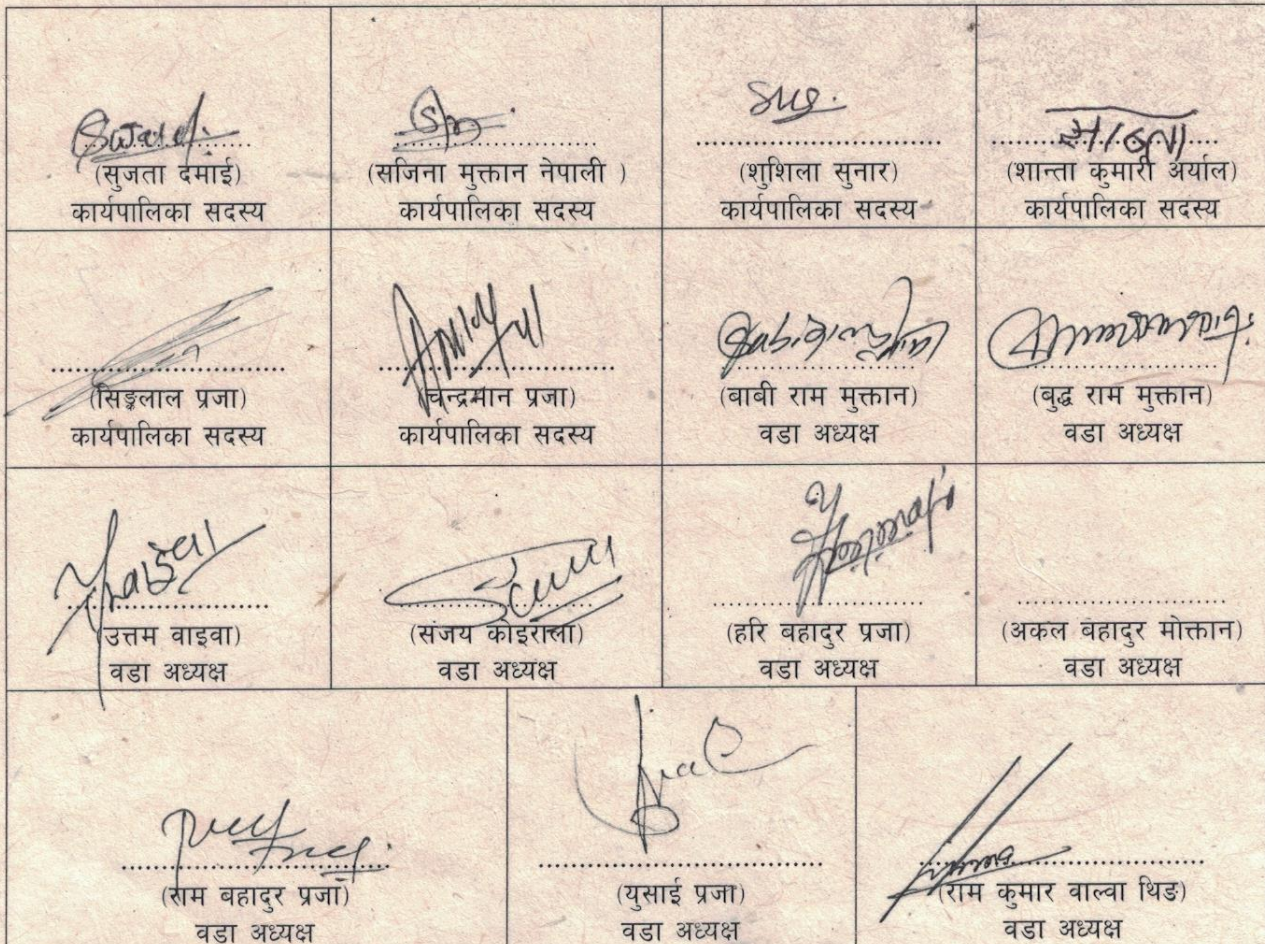 (सुजता दमाई)
कार्यपालिका सदस्य
(सजिना मुक्तान नेपाली )
कार्यपालिका सदस्य
(शुशिला सुनार)
कार्यपालिका सदस्य
(शान्ता कुमारी अर्याल)
कार्यपालिका सदस्य
(सिङ्लाल प्रजा)
कार्यपालिका सदस्य
(चन्द्रमान प्रजा)
कार्यपालिका सदस्य
(बाबी राम मुक्तान)
वडा अध्यक्ष
(बुद्ध राम मुक्तान)
वडा अध्यक्ष
(उत्तम वाइवा)
वडा अध्यक्ष
(संजय कोइराला)
वडा अध्यक्ष
(हरि बहादुर प्रजा)
वडा अध्यक्ष
(अकल बहादुर मोक्तान)
वडा अध्यक्ष
(राम बहादुर प्रजा)
वडा अध्यक्ष
(युसाई प्रजा)
वडा अध्यक्ष
(राम कुमार वाल्वा थिङ)
वडा अध्यक्ष